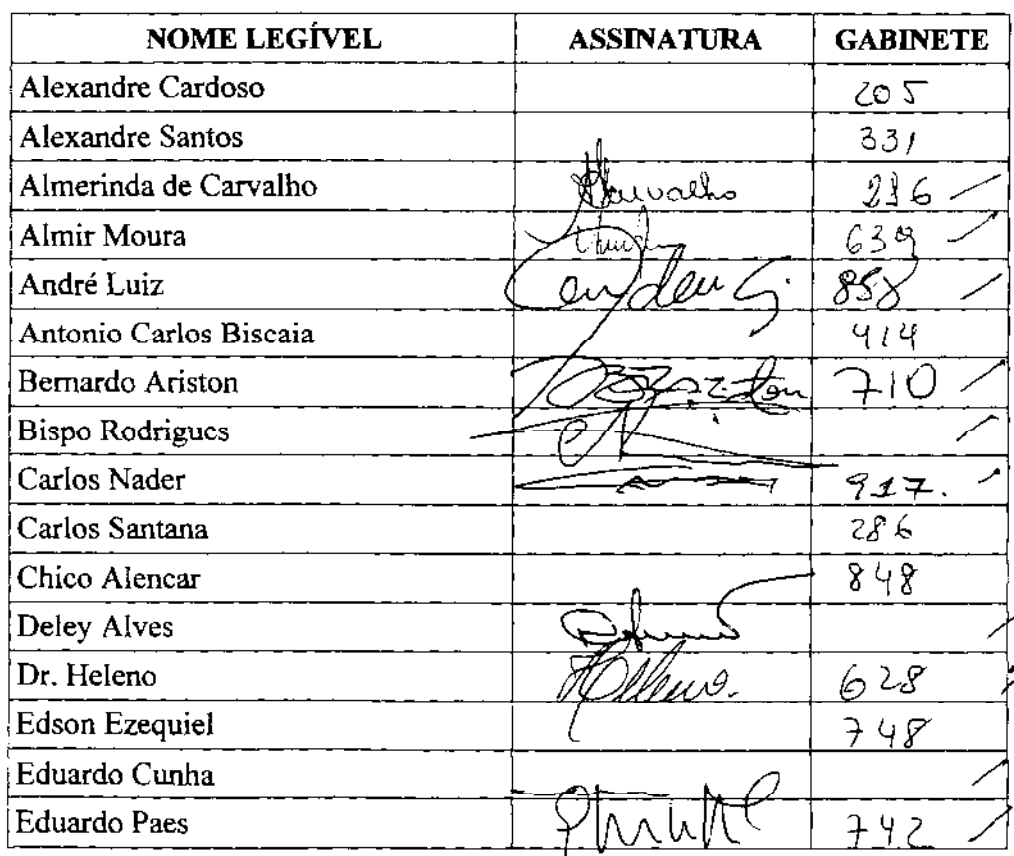 NOME LEGÍVEL ASSINATURA GABINETE
Alexandre Cardoso 205
Alexandre Santos 331
Almerinda de Carvalho Carvalho 236
Almir Moura 639
André Luiz 858
Antonio Carlos Biscaia 414
Bernardo Ariston 710
Bispo Rodrigues
Carlos Nader 917.
Carlos Santana 286
Chico Alencar 848
Deley Alves
Dr. Heleno Heleno. 628
Edson Ezequiel 748
Eduardo Cunha
Eduardo Paes 742